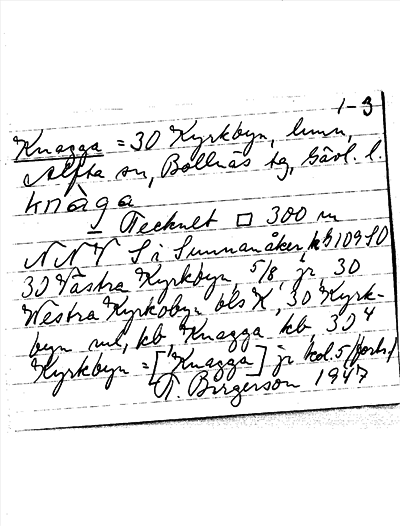 1-3
Knagga = 30 Kyrkbyn, hmn,
Alfta sn, Bollnäs tg, Gävl. l.
knàga
= Tecknet □ 300 m
NNV S i Sunnanåker, kb 109 SO
30 Västra Kyrkbyn, 5/8, jr, 30
Westra Kyrkobyn bls K, 30 Kyrk-
byn rul, kb Knagga kb 30 4
Kyrkbyn = [Knagga] jr kol. 5 forts.
T. Birgerson 1947